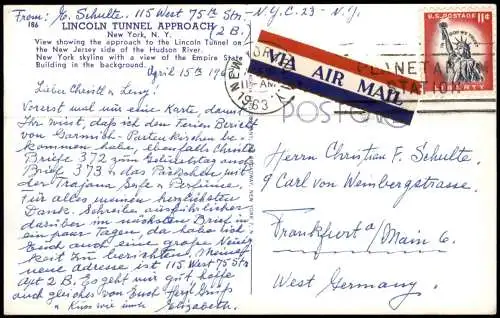 From: E. Schulte. 115 West 75th Str. N.Y.C. 23 - N.Y.
186
LINCOLN TUNNEL APPROACH
New York, N. Y.
(2 B.)
View showing the approach to the Lincoln Tunnel on
the New Jersey side of the Hudson River.
New York skyline with a view of the Empire State
Building in the background.
April 15th 196
Liebe Christel u. Leny!
Vorerst mal nur eine Karte, damit
Ihr wisst, daß ich den Ferien Bericht
von Garmisch-Partenkirchen be-
kommen habe, ebenfalls Christels
Briefe 372 zum Geburtstag auch
Brief 373 u. das Päckchen mit
der Trojana Seife u. Perfüme.
Für alles meinen herzlichsten
Dank. Schreibe ausführliches
darüber im nächsten Brief in
ein paar Tagen, da habe ich
Euch auch eine große Neuig-
keit zu berichten. Meine
neue adresse ist 115 West 75 Str
Apt 2 B. Es geht mir gut hoffe
auch gleiches von Euch Herzl. Grüß
u Kuss wie immer Elizabeth.
NEW YORK
11 AM
1963
PLANETARIUM
STATION
VIA AIR MAIL
U.S. POSTAGE 11¢
LIBERTY
POSTCARD
Herrn Christian F. Schulte.
9 Carl von Weinbergstrasse.
Frankfurt a/Main 6.
West Germany.